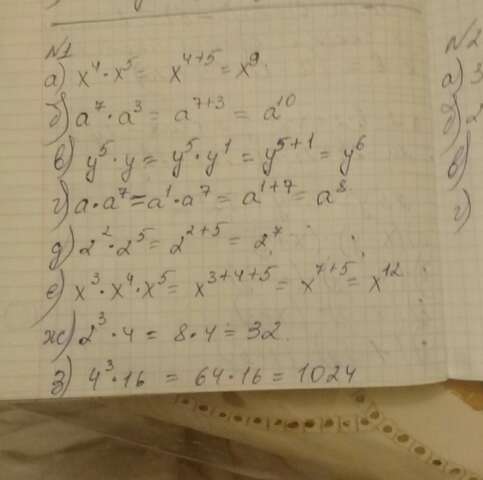 №1
а) x⁴·x⁵= x⁴⁺⁵=x⁹
б) a⁷·a³= a⁷⁺³= a¹⁰
в) y⁵·y= y⁵·y¹= y⁵⁺¹= y⁶
г) a·a⁷=a¹·a⁷= a¹⁺⁷= a⁸
д) 2²·2⁵= 2²⁺⁵= 2⁷
е) x³·x⁴·x⁵= x³⁺⁴⁺⁵= x⁷⁺⁵= x¹²
ж) 2³·4= 8·4= 32
з) 4³·16= 64·16=1024
№2
а) 3
б) 2
в)
г)